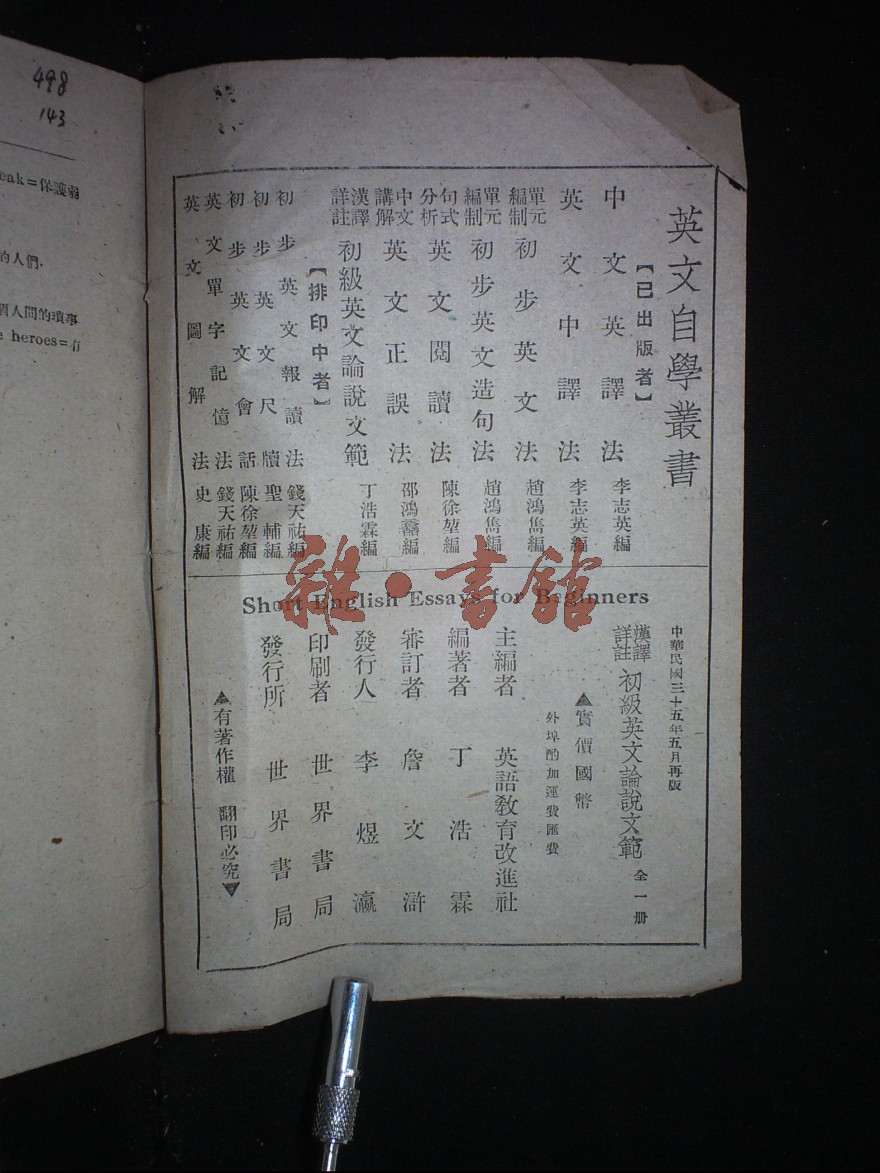 498
143
eak=保護弱
的人們.
個人間的瑣事
e heroes=有
英文自學叢書
【已出版者】
中文英譯法 李志英編
英文中譯法 李志英編
單元編制 初步英文法 趙鴻雋編
單元編制 初步英文造句法 趙鴻雋編
句式分析 英文閱讀法 陳徐堃編
中文講解 英文正誤法 邵鴻馨編
漢譯詳註 初級英文論說文範 丁浩霖編
【排印中者】
初步英文報讀法 錢天祐編
初步英文尺牘 聖輔編
初步英文會話 陳徐堃編
英文單字記憶法 錢天祐編
英文圖解法 史康編
雜·書館
Short English Essays for Beginners
中華民國三十五年五月再版
漢譯詳註 初級英文論說文範 全一册
▲實價國幣
外埠酌加運費匯費
主編者 英語教育改進社
編著者 丁浩霖
審訂者 詹文滸
發行人 李煜瀛
印刷者 世界書局
發行所 世界書局
▲有著作權 翻印必究▼